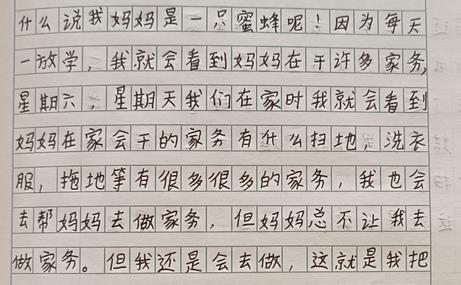 什么说我妈妈是一只蜜蜂呢！因为每天
一放学，我就会看到妈妈在干许多家务，
星期六，星期天我们在家时我就会看到
妈妈在家会干的家务有什么扫地，洗衣
服，拖地等有很多很多的家务，我也会
去帮妈妈去做家务，但妈妈总不让我去
做家务。但我还是会去做，这就是我把